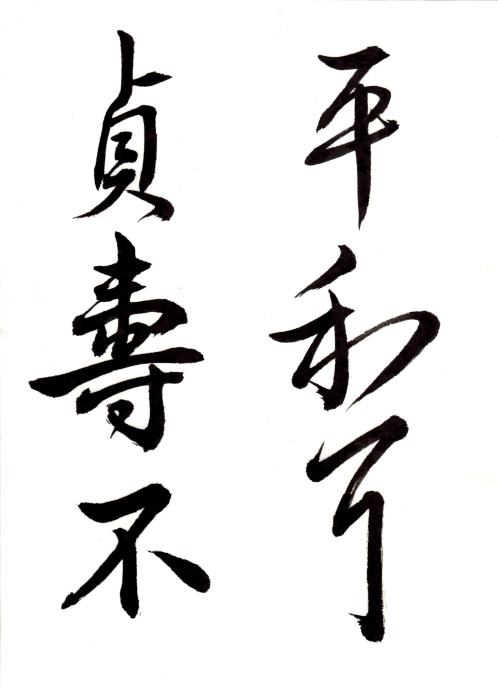 平和
貞壽不